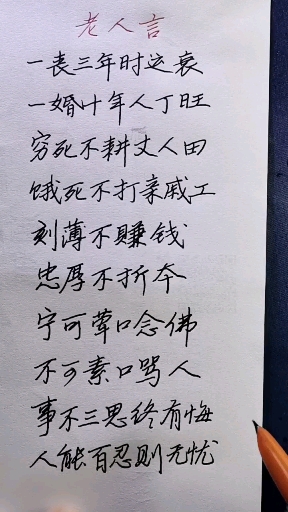 老人言
一丧三年时运衰
一婚十年人丁旺
穷死不耕丈人田
饿死不打亲戚工
刻薄不赚钱
忠厚不折本
宁可荤口念佛
不可素口骂人
事不三思终有悔
人能百忍则无忧